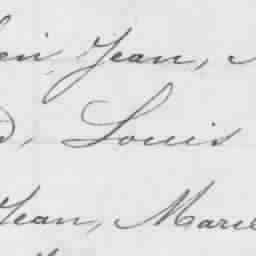 Jean,
Louis
Jean, Marie